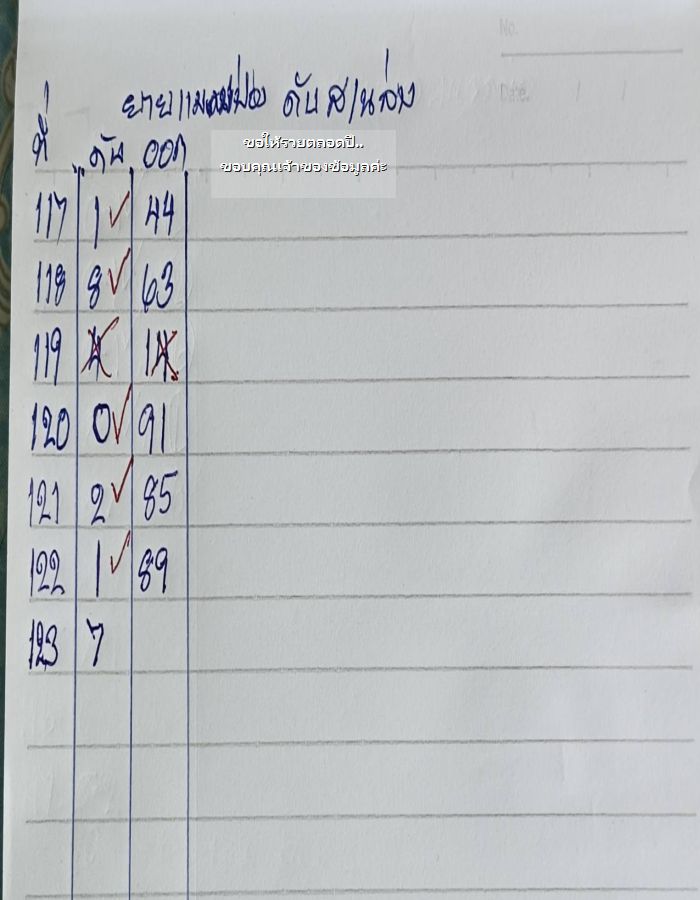 No.
Date.
ดับ ส/นล่าง
ที่ ดับ ออก
ขอให้รวยตลอดปี..
ขอบคุณเจ้าของข้อมูลค่ะ
117 1✓ 44
118 8✓ 63
119 4 14
120 0✓ 91
121 2✓ 85
122 1✓ 89
123 7